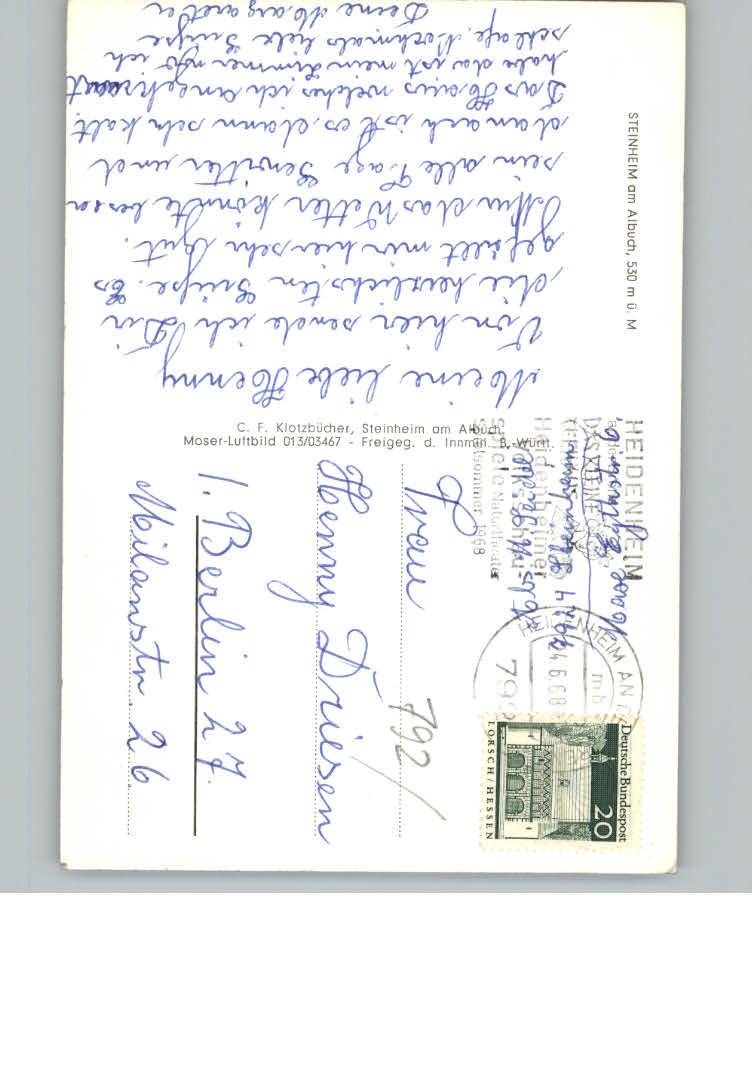 STEINHEIM am Albuch, 530 m ü. M
Meine liebe Henny
Von hier sende ich Dir
die herzlichsten Grüße. Es
gefällt mir hier sehr gut.
Nur das Wetter könnte besser
sein alle Tage Gewitter und
danach ist es dann sehr kalt.
Das Haus welches ich angekreuzt
habe da ist mein Zimmer wo ich
schlafe. Nochmals liebe Grüße
Deine Margarethe
C. F. Klotzbücher, Steinheim am Albuch
Moser-Luftbild 013/03467 - Freigeg. d. Innmin. B.-Württ.
HEIDENHEIM
Heidenheimer
Volksschau-
Spiele Naturtheater
1968
HEIDENHEIM AN
24.6.68
mb
792
Deutsche Bundespost
20
LORSCH/HESSEN
792/
Frau
Henny Driesen
1. Berlin 27.
Milanstr. 26